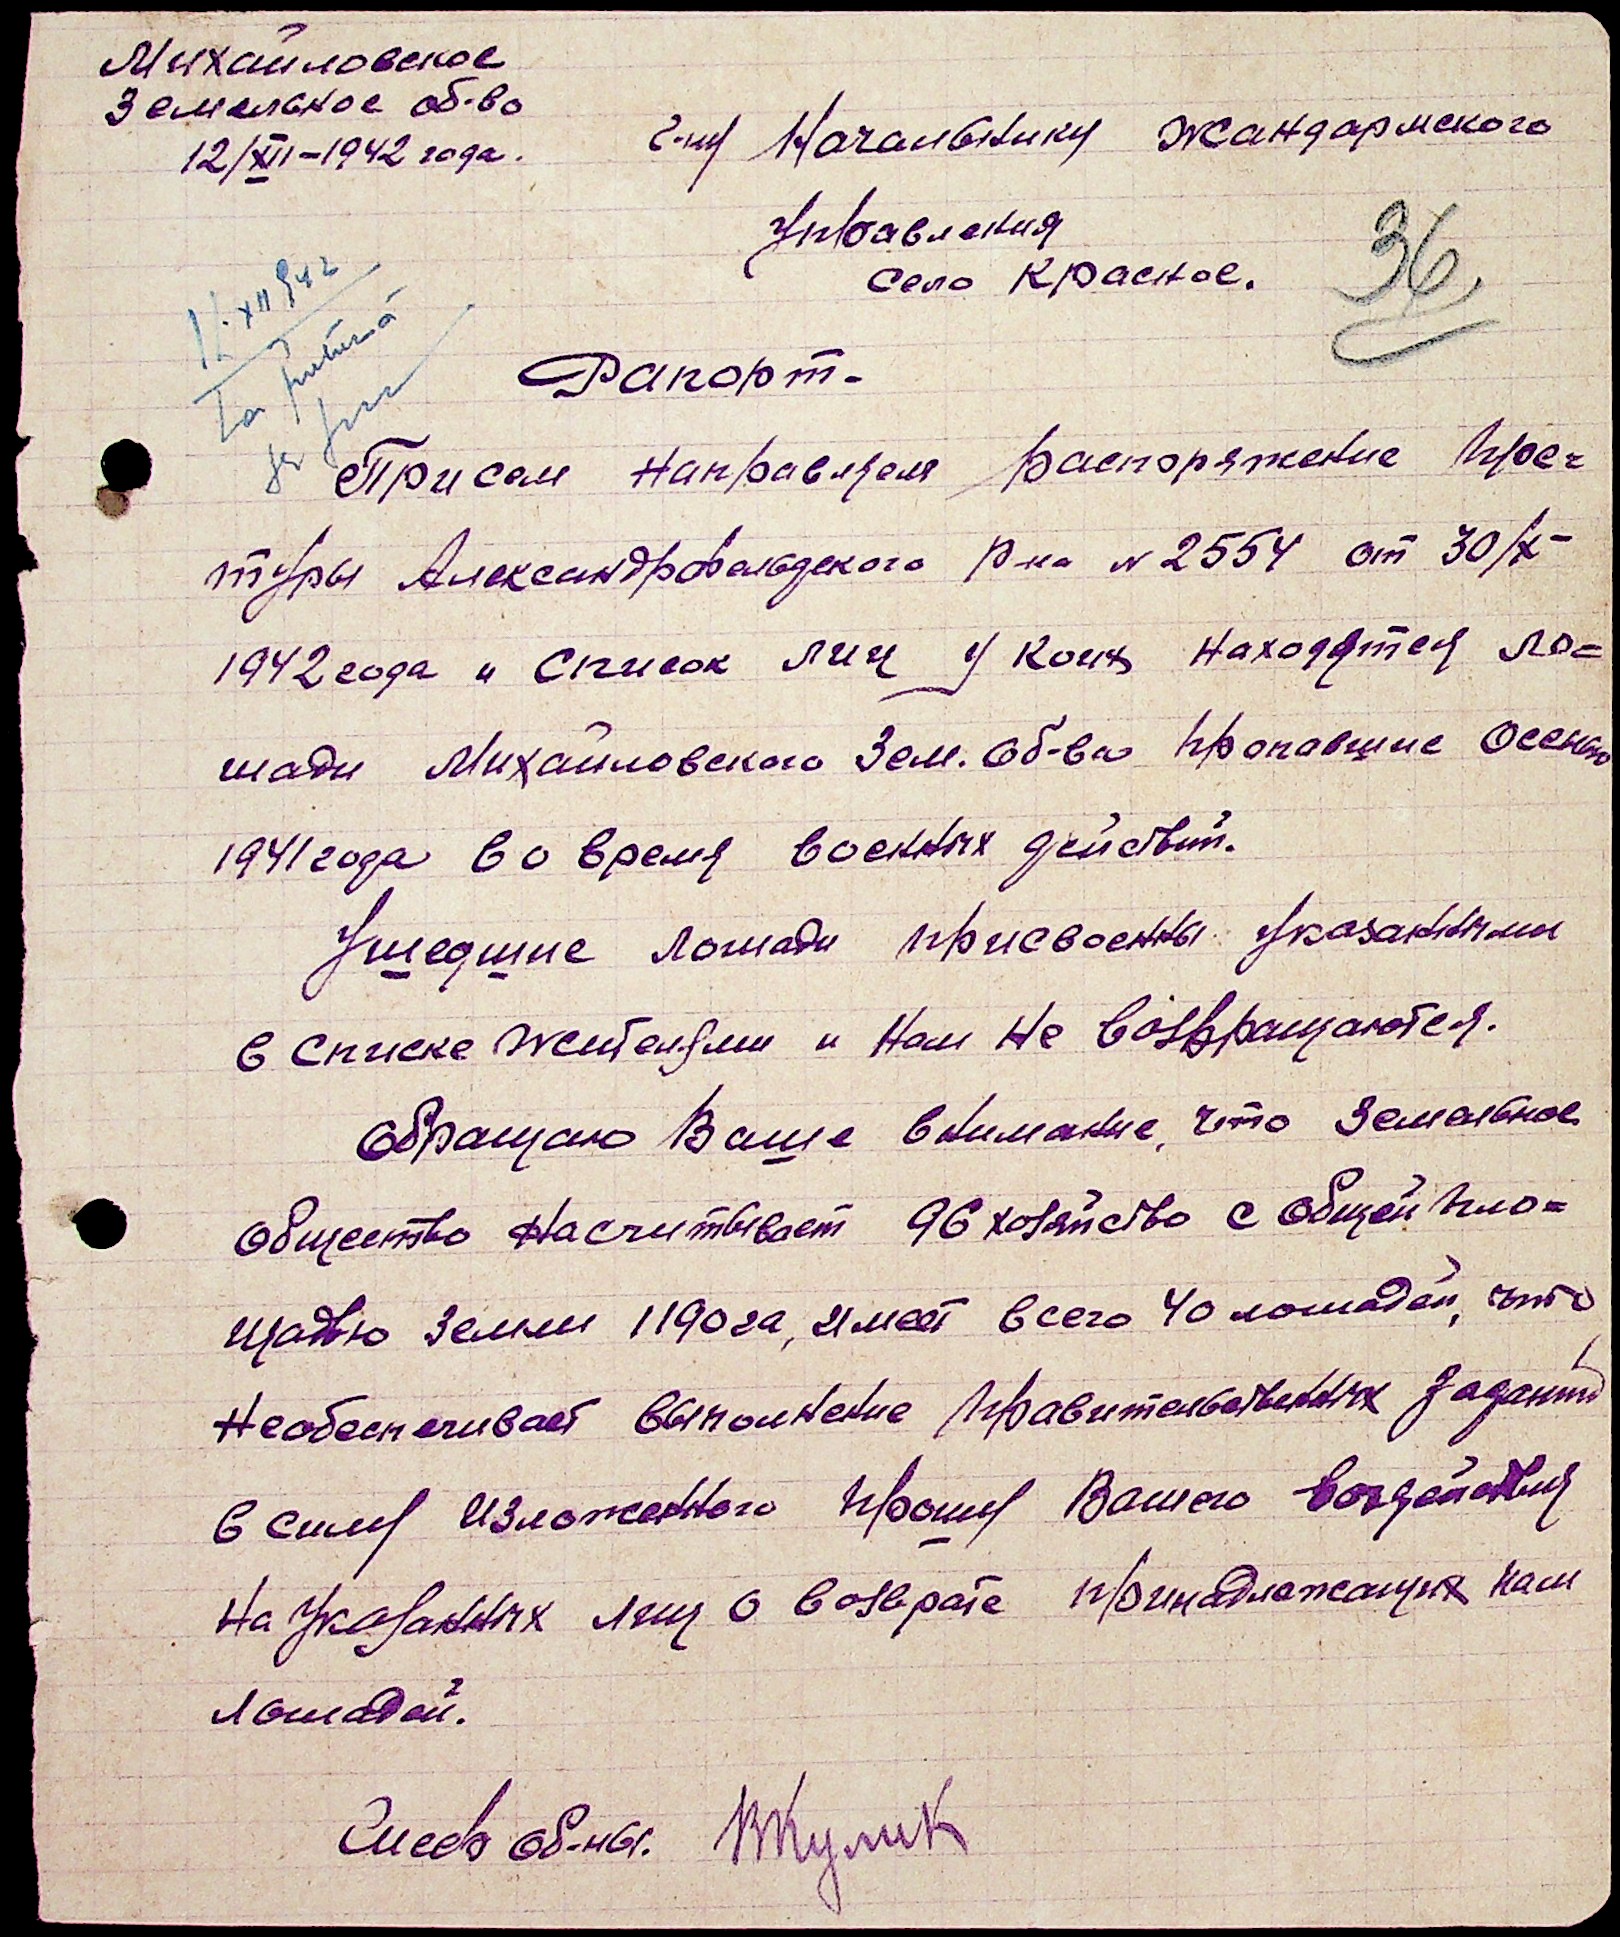 Михайловское
Земельное об-во
12/XII-1942 года.
г-ну Начальнику Жандармского
Управления
село Красное.
36
Рапорт.
При сем направляем распоряжение Пре=
туры Александрфельдского р-на № 2554 от 30/X-
1942 года и список лиц у коих находятся ло=
шади Михайловского Зем. Об-ва пропавшие осенью
1941 года во время военных действий.
Ушедшие лошади присвоенны указанными
в списке жителями и нам не возвращаются.
Обращаю Ваше внимание, что Земельное
общество насчитывает 96 хозяйство с общей пло=
щадью земли 1190 га, имеет всего 40 лошадей, что
необеспечивает выполнение правительственных заданий
В силу изложенного прошу Вашего воздействия
на указанных лиц о возврате принадлежащих нам
лошадей.
об-ны. ВКулик